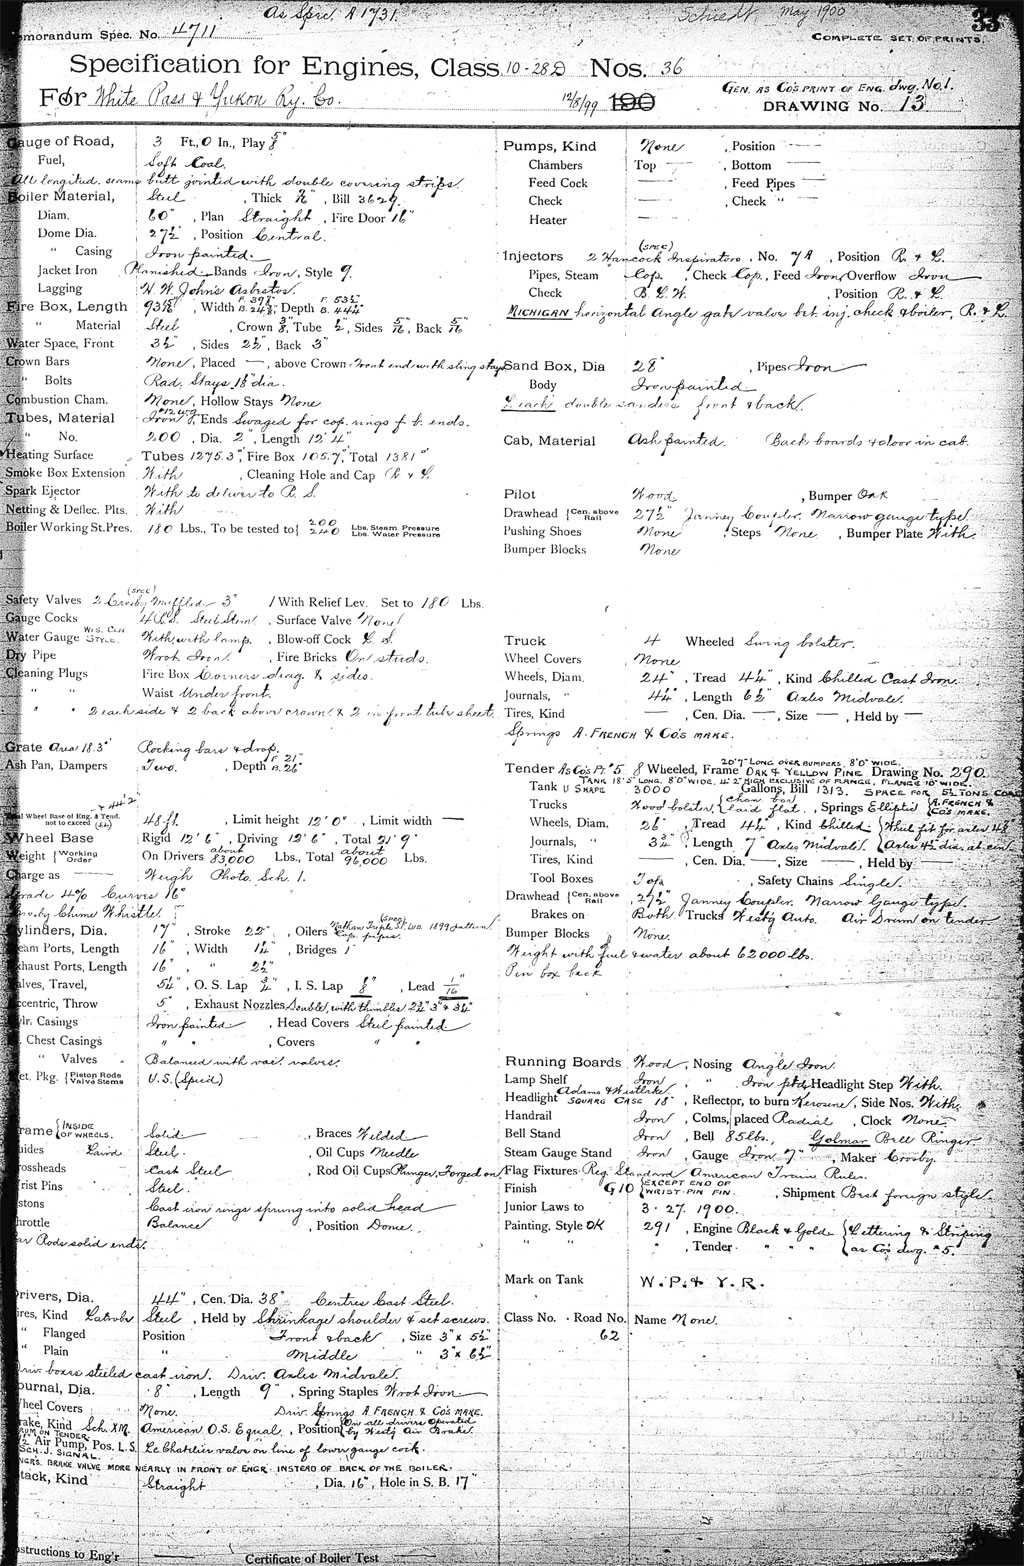 As Spec. A 1731.
May 1900
33
Memorandum Spec. No. 4711
COMPLETE SET OF PRINTS.
Specification for Engines, Class 10-28 D Nos. 36
GEN. AS CO'S PRINT OF ENG. dwg. No.1.
For White Pass & Yukon Ry. Co. 12/8/99 190
DRAWING No. 13
Gauge of Road, 3 Ft., 0 In., Play 5/8"
Fuel, Soft Coal.
All longitud. seams butt jointed with double covering strips.
Boiler Material, Steel, Thick , Bill 3629.
Diam. 60", Plan Straight, Fire Door 16"
Dome Dia. 27½", Position Central.
" Casing Iron painted.
Jacket Iron Planished Bands Iron, Style 9.
Lagging H. W. John's Asbestos.
Fire Box, Length , Width F. B. , Depth F. 53½" B. 44¼"
" Material Steel, Crown 3/8", Tube ½", Sides 5/16", Back 5/16"
Water Space, Front 3½", Sides 2½", Back 3"
Crown Bars None, Placed —, above Crown Front end with sling stays
" Bolts Rad. Stays 1⅛" dia.
Combustion Cham. None, Hollow Stays None
Tubes, Material Iron #12 W.G., Ends Swaged for cop. rings f. b. ends.
" No. 200, Dia. 2", Length 12' 4"
Heating Surface Tubes 1275.3", Fire Box 105.7", Total 1381"
Smoke Box Extension With, Cleaning Hole and Cap R & L
Spark Ejector With to deliver to R. S.
Netting & Deflec. Plts. With
Boiler Working St. Pres. 180 Lbs., To be tested to { 200 Lbs. Steam Pressure
240 Lbs. Water Pressure
Safety Valves 2 Crosby Muffled (spec) 3" 1 With Relief Lev. Set to 180 Lbs.
Gauge Cocks 4 Steel Stem, Surface Valve None
Water Gauge WIS. CEN. STYLE. With, with lamp, Blow-off Cock L. S.
Dry Pipe Wrot Iron, Fire Bricks On studs.
Cleaning Plugs Fire Box Corners diag. & sides.
" " Waist Under front.
" " 2 each side & 2 back above crown & 2 in front tube sheet.
Grate Area 18.3" Rocking bars & drop.
Ash Pan, Dampers Two, Depth F. 21" B. 26"
Total Wheel Base of Eng. & Tend. not to exceed 48 ft., Limit height 12' 0", Limit width —
Wheel Base Rigid 12' 6", Driving 12' 6", Total 21' 9"
Weight { Working Order On Drivers about 83,000 Lbs., Total about 96,000 Lbs.
Charge as — Weigh Photo. Sch. 1.
Grade 4% Curves 16°
Crosby Chime Whistle.
Cylinders, Dia. 17", Stroke , Oilers Nathan Triple St. 1899 pattern (spec) Cop. pipes.
Steam Ports, Length 16", Width 1¼", Bridges 1"
Exhaust Ports, Length 16", " 2½"
Valves, Travel, 5¼", O. S. Lap ¾", I. S. Lap 1/8", Lead 1/16"
Eccentric, Throw 5", Exhaust Nozzles Double, with thimbles 2¾" 3" & 3¼"
Cylr. Casings Iron painted, Head Covers Steel painted
St. Chest Casings " ", Covers " "
" Valves Balanced with vac. valves.
Met. Pkg. { Piston Rods Valve Stems U.S. (Spec'd)
Frame { INSIDE OF WHEELS. Solid, Braces Welded
Guides Laird Steel, Oil Cups Needle
Crossheads Cast Steel, Rod Oil Cups Plunger, Forged on
Wrist Pins Steel.
Pistons Cast iron rings sprung into solid head
Throttle Balance, Position Dome.
Par Rods solid ends.
Drivers, Dia. 44", Cen. Dia. 38" Centres Cast Steel.
Tires, Kind Latrobe Steel, Held by Shrinkage shoulder & set screws.
" Flanged Position Front & back, Size 3" x 5½"
" Plain " Middle " 3" x 6½"
Driv. boxes steeled cast iron. Driv. Axles Midvale.
Journal, Dia. 8", Length 9", Spring Staples Wrot Iron
Wheel Covers None. Driv. Springs A. FRENCH & CO'S MAKE.
Brake, Kind Sch. X M. American O. S. Equal, Position { On all drivers operated by West'g Air Brake.
DRUM ON TENDER.
9½ Air Pump, Pos. L. S. Le Chatelier valve on line of lower gauge cock.
SCH. J. SIGNAL.
ENGR'S. BRAKE VALVE MORE NEARLY IN FRONT OF ENGR. INSTEAD OF BACK OF THE BOILER.
Stack, Kind Straight, Dia. 16", Hole in S. B. 17"
Instructions to Eng'r — Certificate of Boiler Test —
Pumps, Kind None, Position —
Chambers Top —, Bottom —
Feed Cock —, Feed Pipes —
Check —, Check " —
Heater —
Injectors 2 Hancock Inspirators (spec), No. 7 A, Position R. & L.
Pipes, Steam Cop., Check Cop., Feed Iron Overflow Iron
Check B. L. W., Position R. & L.
MICHIGAN horizontal Angle gate valve bet. inj. check & boiler, R. & L.
Sand Box, Dia 28", Pipes Iron
Body Iron painted
2 each double sanders front & back.
Cab, Material Ash painted. Back boards & door in cab.
Pilot Wood, Bumper Oak
Drawhead { Cen. above Rail 27½" Janney Coupler. Narrow gauge type
Pushing Shoes None, Steps None, Bumper Plate With.
Bumper Blocks None
Truck 4 Wheeled Swing bolster.
Wheel Covers None.
Wheels, Diam. 24", Tread 4¼", Kind Chilled Cast Iron.
Journals, " 4¼", Length 6½" Axles Midvale.
Tires, Kind —, Cen. Dia. —, Size —, Held by —
Springs A. FRENCH & CO'S MAKE.
20'7" LONG OVER BUMPERS, 8'0" WIDE.
Tender As Co's Pt. #5 8 Wheeled, Frame OAK & YELLOW PINE Drawing No. 290.
TANK 18'5" LONG, 8'0" WIDE, 4'2" HIGH EXCLUSIVE OF FLANGE, FLANGE 10" WIDE.
Tank U SHAPE 3000 Gallons, Bill 1313. SPACE FOR 5½ TONS COAL
Trucks Wood bolster { chan. bar laid flat, Springs Elliptic { A. FRENCH & CO'S MAKE.
Wheels, Diam. 26", Tread 4¼", Kind Chilled { Wheel fit for axles 4⅜"
Journals, " 3¾", Length 7" Axles Midvale { Axles 4½ dia. at cen.
Tires, Kind —, Cen. Dia. —, Size —, Held by —
Tool Boxes 2 Tops, Safety Chains Single.
Drawhead { Cen. above Rail 27½" Janney Coupler. Narrow Gauge type.
Brakes on Both Trucks West'g Auto. Air Drum on tender
Bumper Blocks None.
Weight with fuel & water about 62000 lbs.
Pin box back
Running Boards Wood, Nosing Angle Iron.
Lamp Shelf Iron, " Iron ptd. Headlight Step With.
Headlight Adams & Westlake SQUARE CASE 18", Reflector, to burn Kerosene, Side Nos. With.
Handrail Iron, Colms, placed Radial, Clock None
Bell Stand Iron, Bell 85 lbs., Golmar Bell Ringer.
Steam Gauge Stand Iron, Gauge Iron 7", Maker Crosby.
Flag Fixtures Reg. Standard American Train Rules.
Finish G 10 { EXCEPT END OF WRIST-PIN FIN., Shipment Best foreign style.
Junior Laws to 3. 27. 1900.
Painting, Style OK 291, Engine Black & Gold { Lettering & Striping
" ", Tender " " " { as Co's dwg. #5.
Mark on Tank W. P. & Y. R.
Class No. - Road No. 62 Name None.